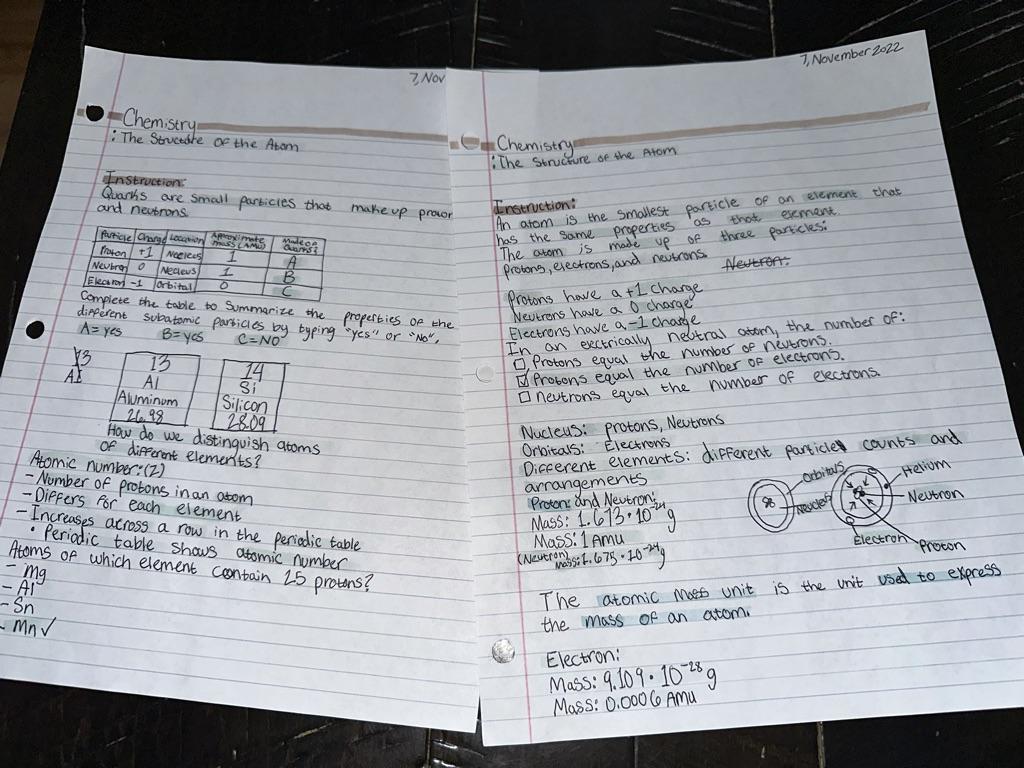 7, Nov
Chemistry
: The Structure of the Atom
Instruction:
Quarks are small particles that make up
and neutrons
Particle Charge Location Approximate mass (AMU) Made of Quarks?
Proton +1 Necleos 1 A
Neutron 0 Necleus 1 B
Electron -1 Orbital 0 C
Complete the table to Summarize the properties of the
different subatomic particles by typing "yes" or "No".
A= yes B=yes C=NO
13
Al
13
Al
Aluminum
26.98
14
Si
Silicon
28.09
How do we distinguish atoms
of different elements?
Atomic number:(Z)
- Number of protons in an atom
- Differs for each element
- Increases across a row in the periodic table
• Periodic table shows atomic number
Atoms of which element contain 25 protons?
- Mg
- Al
- Sn
- Mn ✓
7, November 2022
Chemistry
: The Structure of the Atom
Instruction:
An atom is the smallest particle of an element that
has the same properties as that element.
The atom is made up of three particles:
protons, electrons, and neutrons. Neutron:
Protons have a +1 charge
Neutrons have a 0 charge
Electrons have a -1 charge
In an electrically neutral atom, the number of:
☐ Protons equal the number of neutrons.
☑ Protons equal the number of electrons.
☐ neutrons equal the number of electrons.
Nucleus: protons, Neutrons
Orbitals: Electrons
Different elements: different particles counts and
arrangements
Orbitals
Helium
Neutron
Electron
Proton
Proton: and Neutron:
Mass: 1.673 • 10⁻²⁴ g
Mass: 1 AMU
(Neutron) Mass: 1.675 • 10⁻²⁴ g
The atomic mass unit is the unit used to express
the mass of an atom.
Electron:
Mass: 9.109 • 10⁻²⁸ g
Mass: 0.0006 AMU